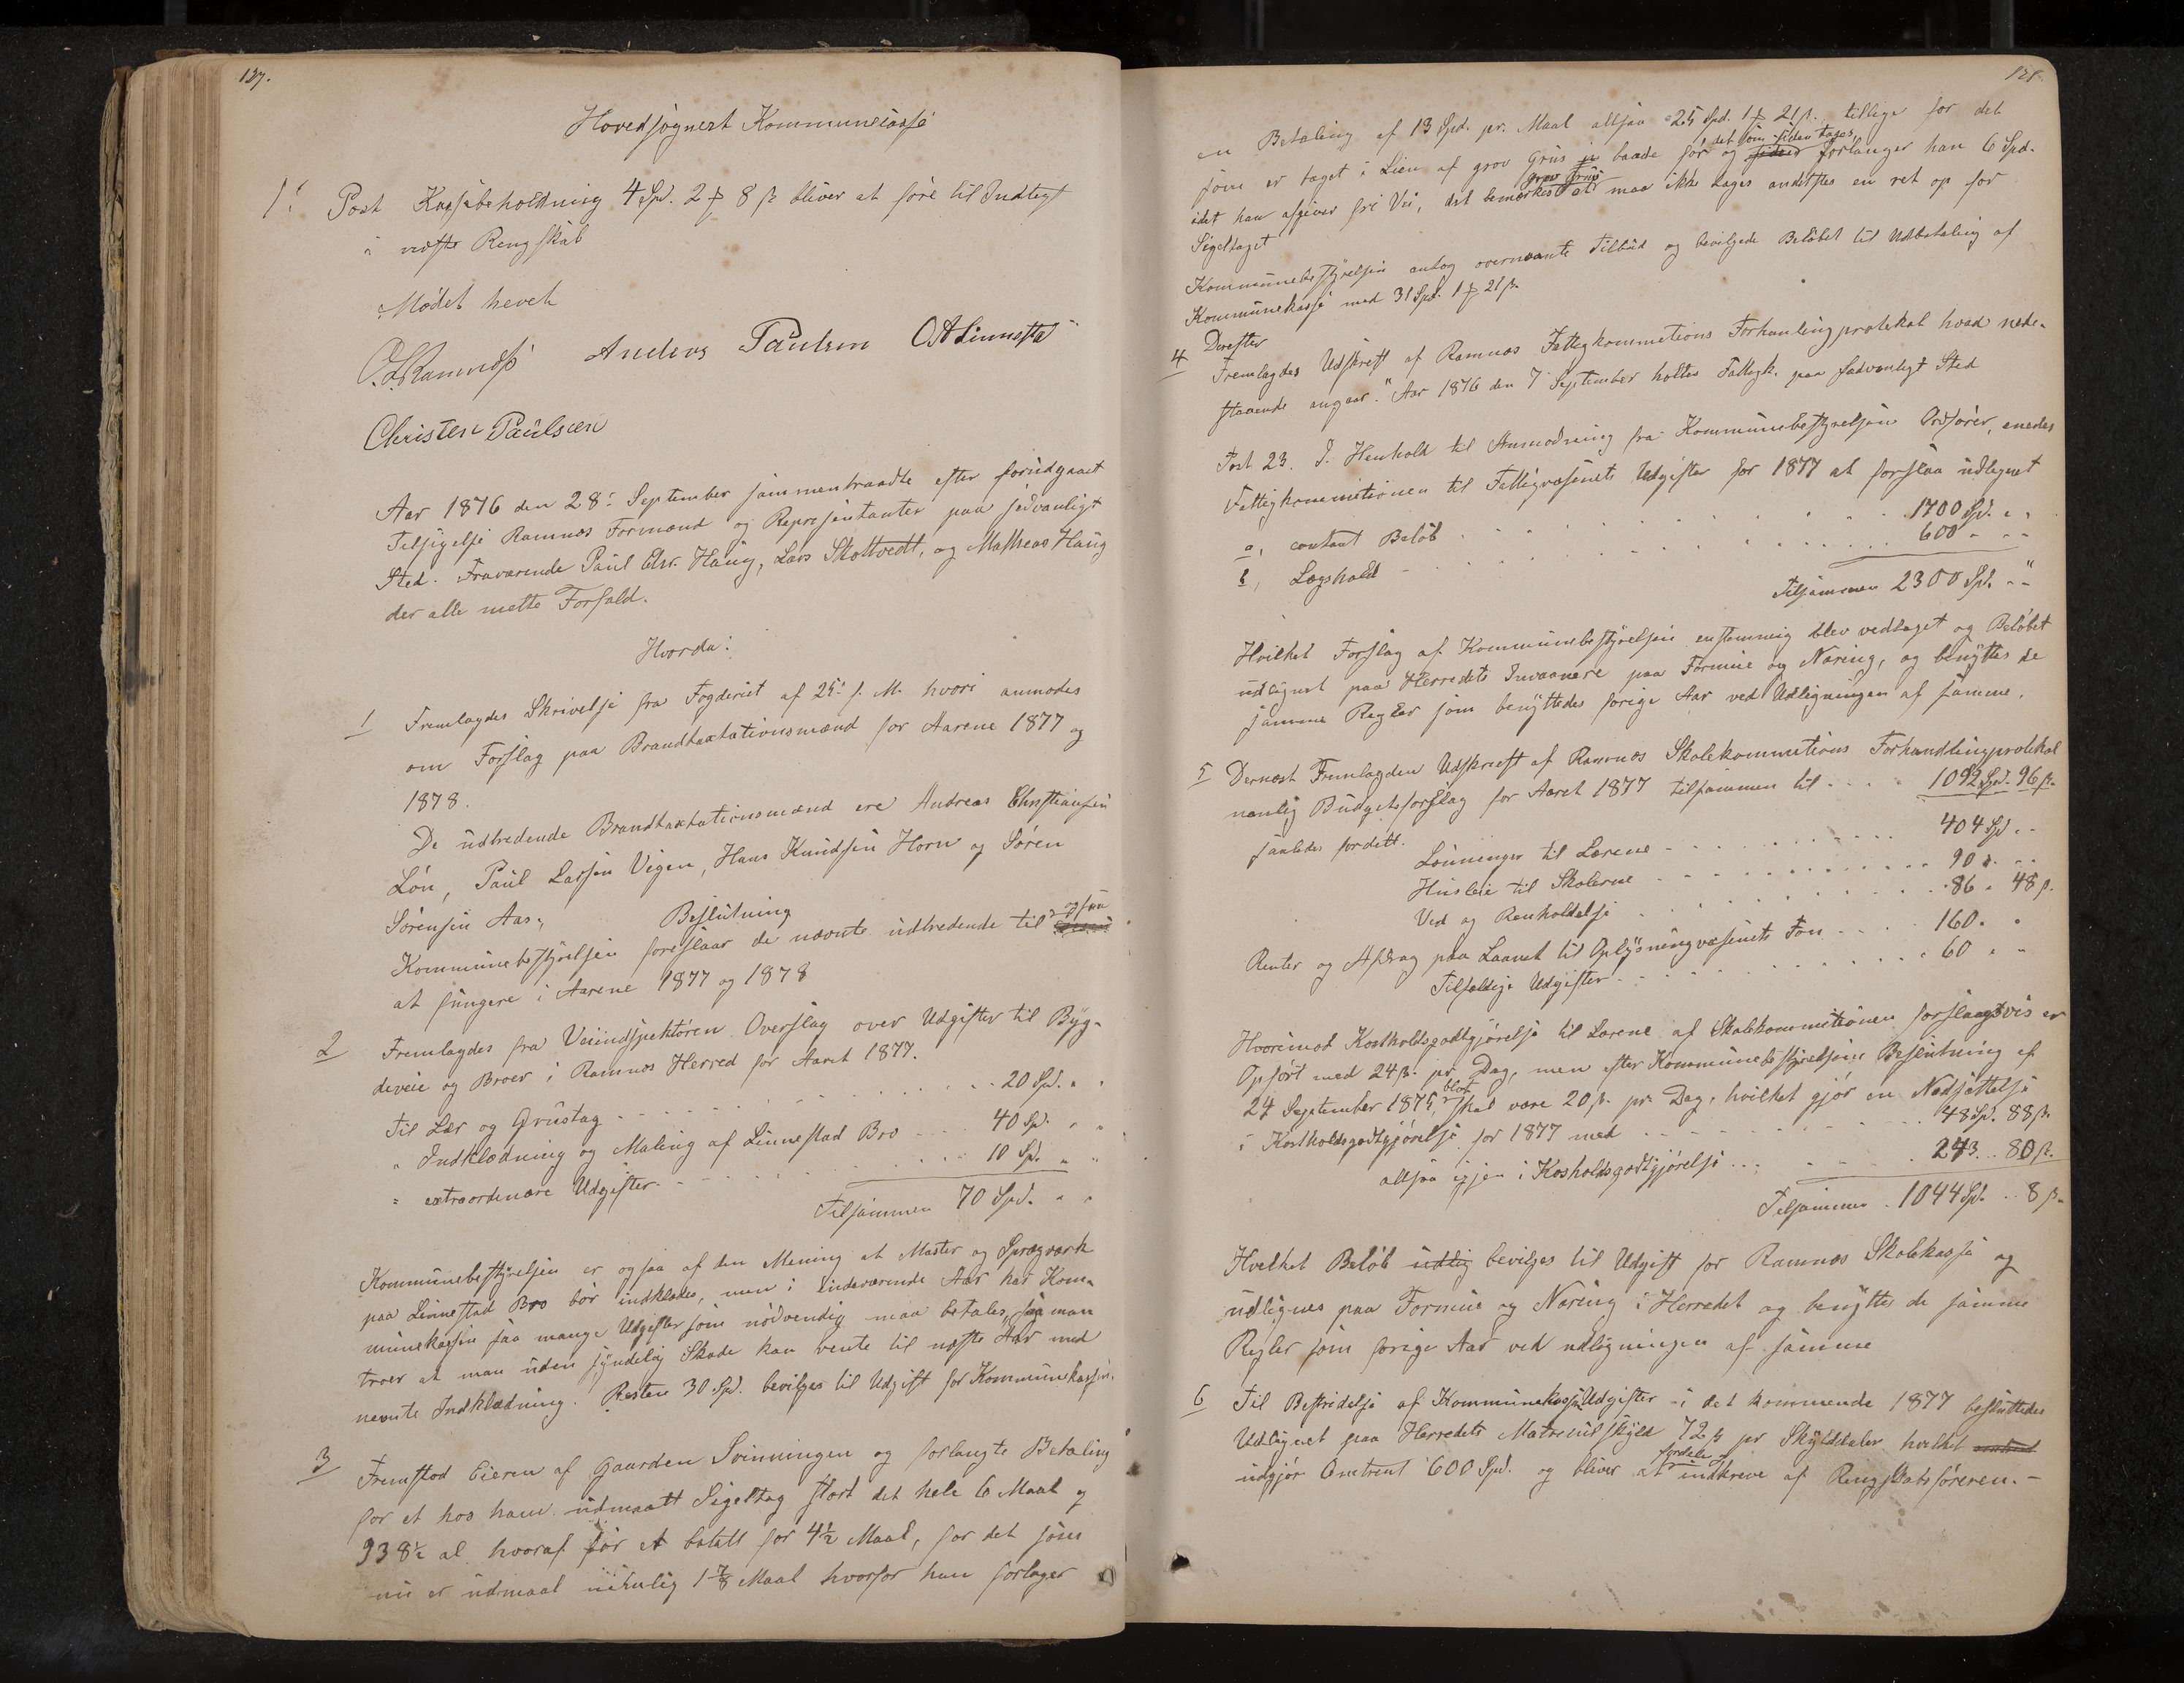 127.
Hovedsognest Kommunecasse
1ste Post Kassabeholdning 4 Spd. 2 ₰ 8 ß bliver at føre til Indtegt
i næste Rengskab
Mødet hevet
Anders Paulsen OALinnestad
Christen Paulsen
Aar 1876 den 28de September sammentraadte efter forudgaaet
Tilsigelse Ramnæs Formænd og Representanter paa sedvanligt
Sted. Fraværende Paul Elvr. Haug, Lars Skottvedt, og Matheas Haug
der alle melte Forfald.
Hvorda:
1 Fremlagdes Skrivelse fra Fogderiet af 25de f. M. hvori anmodes
om Forslag paa Brandtaxtationsmænd for Aarene 1877 og
1878.
De udtredende Brandtaxtationsmænd ere Andreas Christiansen
Løn, Paul Larsen Vigen, Hans Knudsen Horn og Søren
Sørensen Aas.
Beslutning
Kommunebestyrelsen foreslaar de nævnte udtredende til ogsaa
at fungere i Aarene 1877 og 1878
2 Fremlagdes fra Veiindspektøren Overslag over Udgifter til Byg-
deveie og Broer i Ramnæs Herred for Aaret 1877.
Til Lær og Grustag - - - 20 Spd. " "
" Indklædning og Maling af Linnestad Bro - - - 40 Spd. " "
" extraordenære Udgifter - - - 10 Spd. " "
Tilsammen 70 Spd. " "
Kommunebestyrelsen er ogsaa af den Mening at Master og Sprægværk
paa Linnestad Bro bør indklædes, men i indeværende Aar har Kom-
munekassen saa mange Udgifter som nødvendig maa betales, saa man
troer at man uden synderlig Skade kan vente til næste Aar med
nævnte Indklædning. Resten 30 Spd. bevilges til Udgift for Kommunekassen.
3 Fremstod Eieren af Gaarden Svinningen og forlangte Betaling
for et hos ham udmaalt Sigeltag stort det hele 6 Maal og
938½ al. hvoraf før er betalt for 4½ Maal, for det som
nu er udmaal nemlig 1⅞ Maal hvorfor han forlager
128.
en Betaling af 13 Spd. pr. Maal altsaa 25 Spd. 1 ₰ 21 ß. tillige for det
som er taget i Lien af grov Grus baade før og det som siden tages forlanger han 6 Spd.
idet han afgiver fri Vei, det bemærkes at grov Grus maa ikke tages andetstes en ret op for
Sigeltaget
Kommunebestyrelsen antog overnævnte Tilbud og bevilgede Beløbet til Udbetaling af
Kommunekasse med 31 Spd. 1 ₰ 21 ß.
4 Derefter
Fremlagdes Udskreft af Ramnæs Fattigkommetions Forhanlingprotekol hvad nede-
staaende angaar: "Aar 1876 den 7 September holtes Fattigk. paa sædvanligt Sted
Post 23. I Henhold til Anmodning fra Kommunebestyrelsens Ordfører, enedes
Fattigkommetionen til Fattigvæsenets Udgifter for 1877 at forslaa udlegnet
a, contant Beløb - - - 1700 Spd. " "
b, Lægshold - - - 600 " "
Tilsammen 2300 Spd. " "
Hvilket Forslag af Kommunebestyrelsen enstemmig blev vedtaget og Beløbet
udlignet paa Herredets Invaanere paa Formue og Næring, og benyttes de
samme Regler som benyttedes forige Aar ved Udligningen af samme.
5 Dernæst Fremlagdes Udskreft af Ramnæs Skolekommetions Forhandlingprotekol
nemlig Budgetsforslag for Aaret 1877 tilsammen til - - - 1092 Spd. 96 ß.
saaledes fordelt.
Lønninger til Lærene - - - 404 Spd. " -
Husleie til Skolerne - - - 90 " "
Ved og Renholdelse - - - 86 " 48 ß.
Renter og Afdrag paa Laanet til Oplysningvæsenets Fon - - - 160 " "
Tilfældige Udgifter - - - 60 " "
Hvorimod Kostholdsgodtgjørelse til Lærene af Skolekommetionen forslaagsvis er
Opført med 24 ß. pr. Dag, men efter Kommunebestyrelsens Beslutning af
24 September 1875, blot skal være 20 ß. pr. Dag, hvilket gjør en Nedsættelse
i Kostholdsgodtgjørelse for 1877 med - - - 48 Spd. 88 ß.
altsaa igjen i Kosholdsgodtgjørelse - - - 243 - - 80 ß.
Tilsammen 1044 Spd. - - 8 ß.
Hvelket Beløb udlig bevilges til Udgift for Ramnæs Skolekasse og
udlignes paa Formue og Næring i Herredet og benyttes de samme
Regler som forige Aar ved udligningen af samme
6 Til Bestridelse af Kommunekassens Udgifter i det kommende 1877 besluttedes
Udlignet paa Herredets Matreculskyld 72 ß pr Skylddaler hvilket
udgjør Omtrent 600 Spd. og bliver at fordele og indkreve af Rengskabsføreren. -